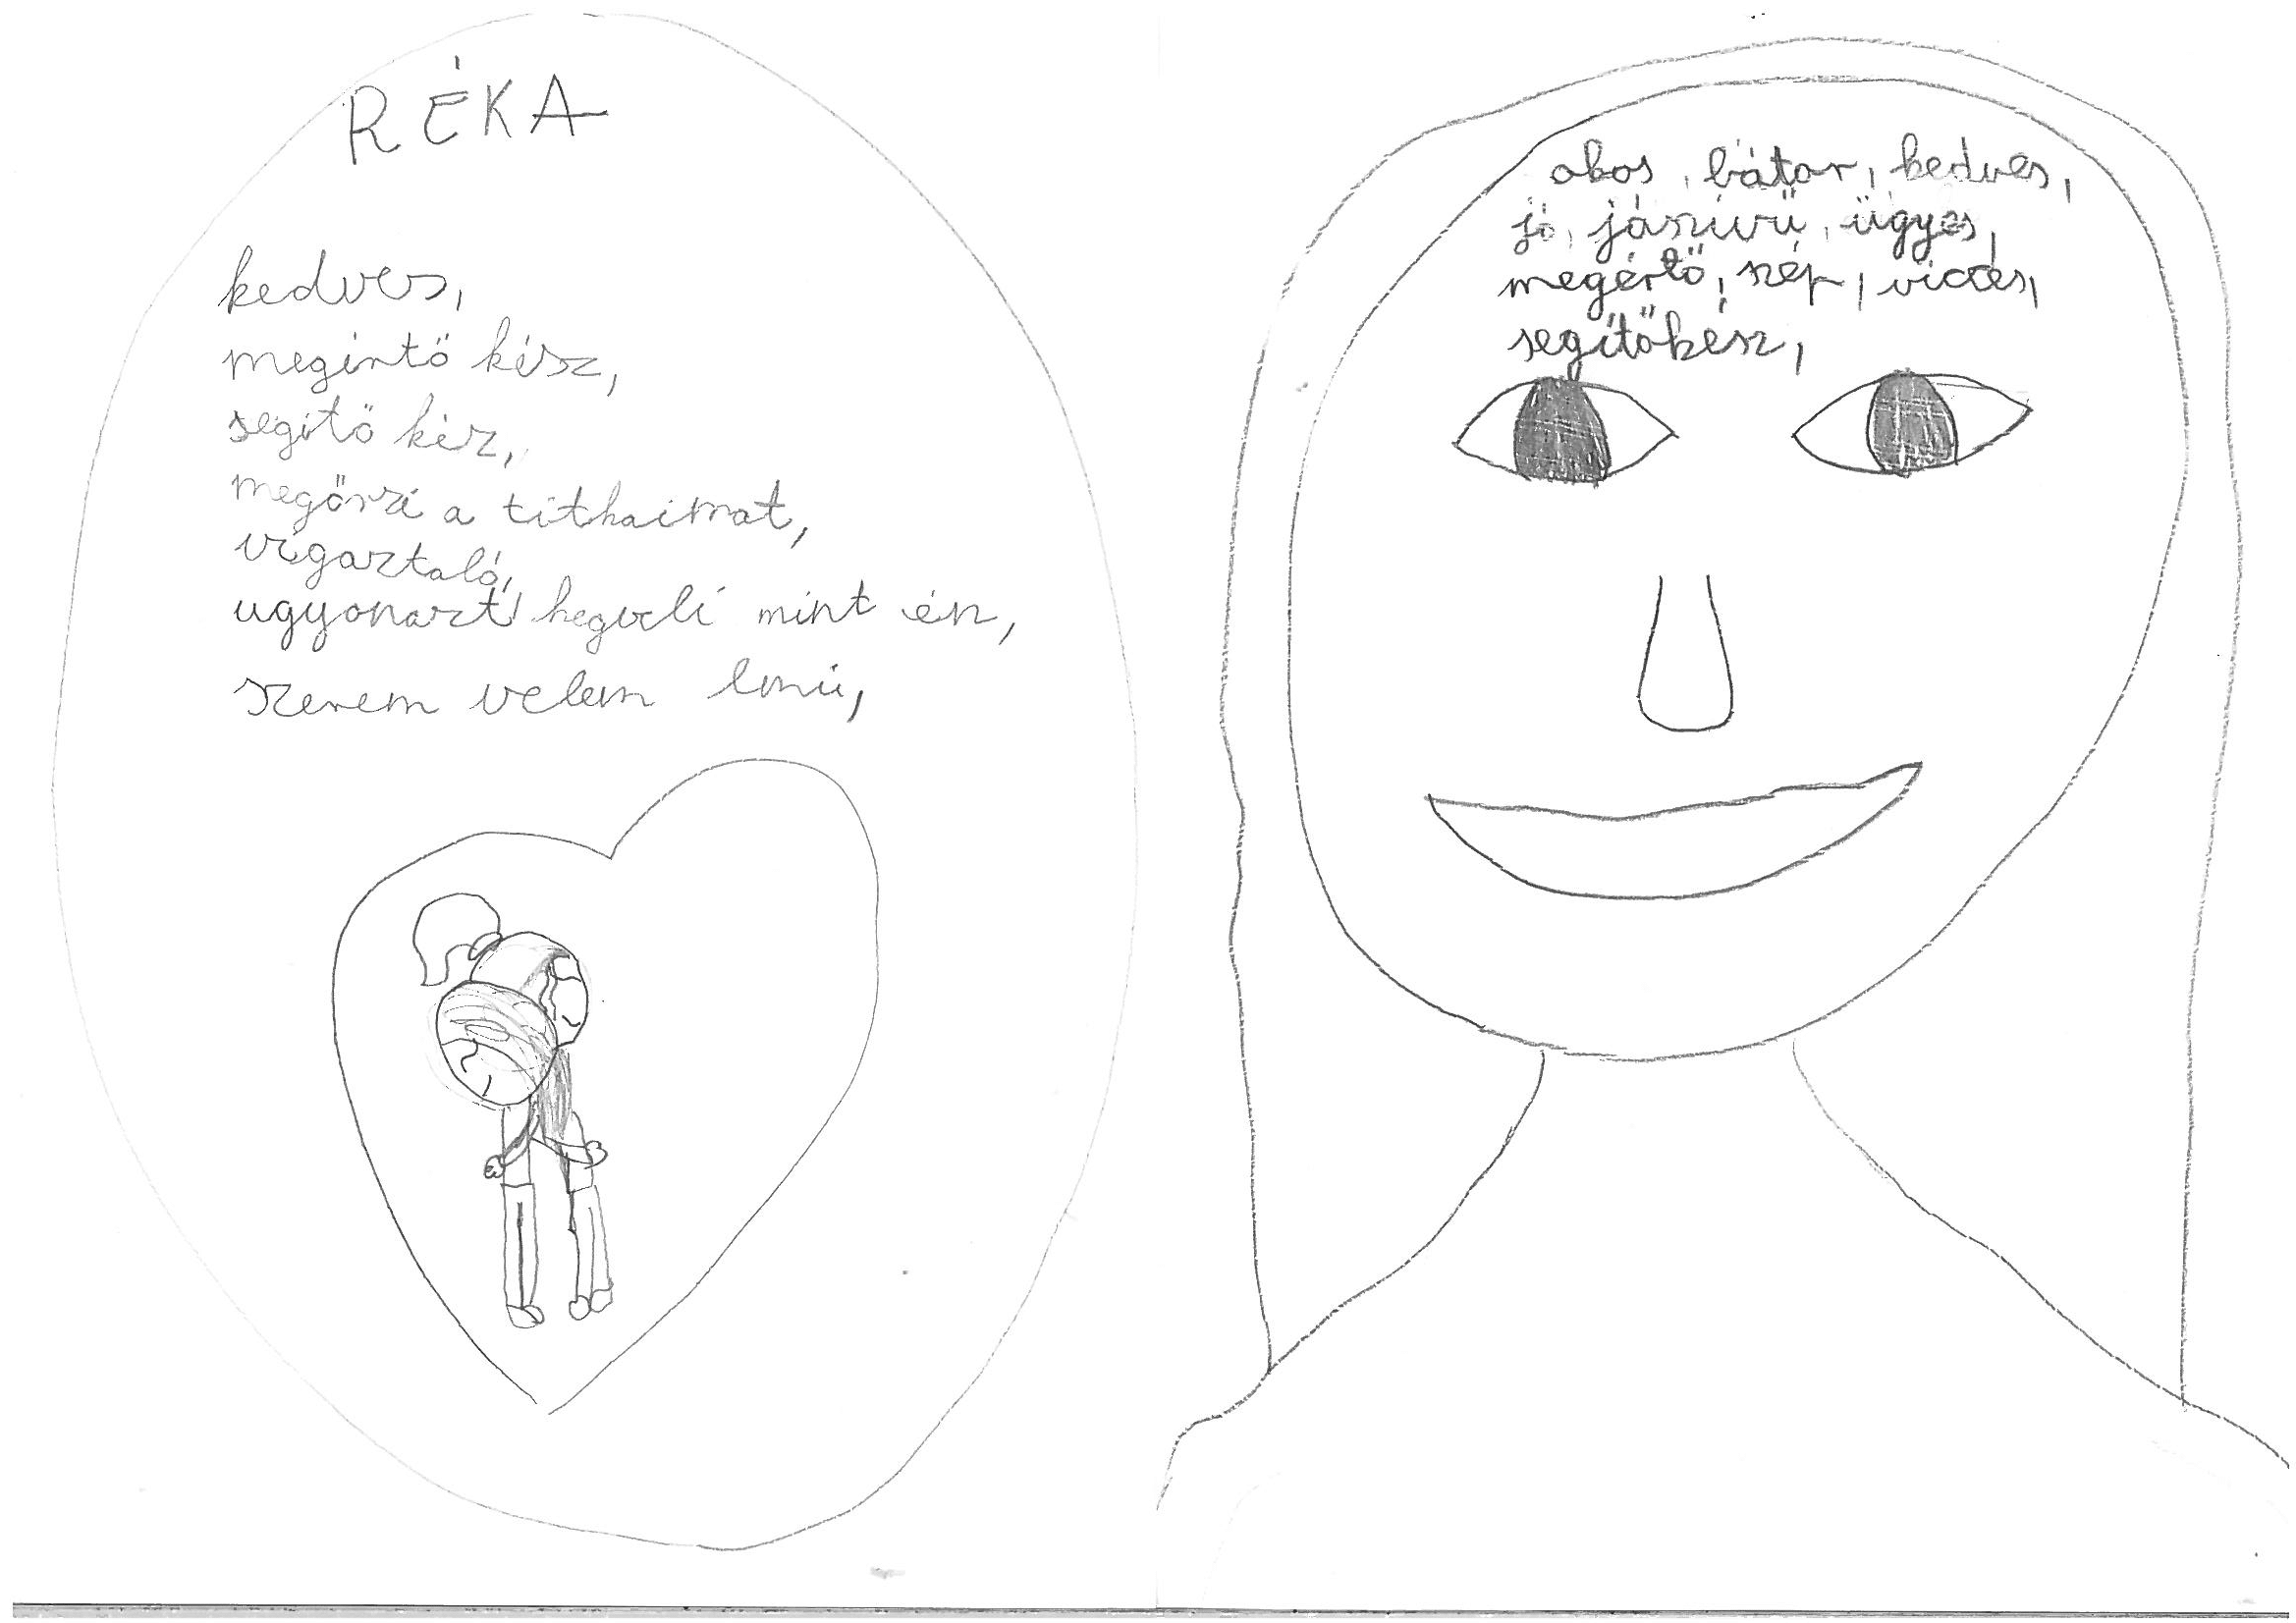 RÉKA
kedves,
megintő kész,
segítő kéz,
megőrzi a titkaimat,
vigaztaló,
ugyonazt hegveli mint én,
szerem velem lenni,
okos, bátor, kedves,
jó, jószívű, ügyes,
megértő, szép, vicces,
segítőkész,